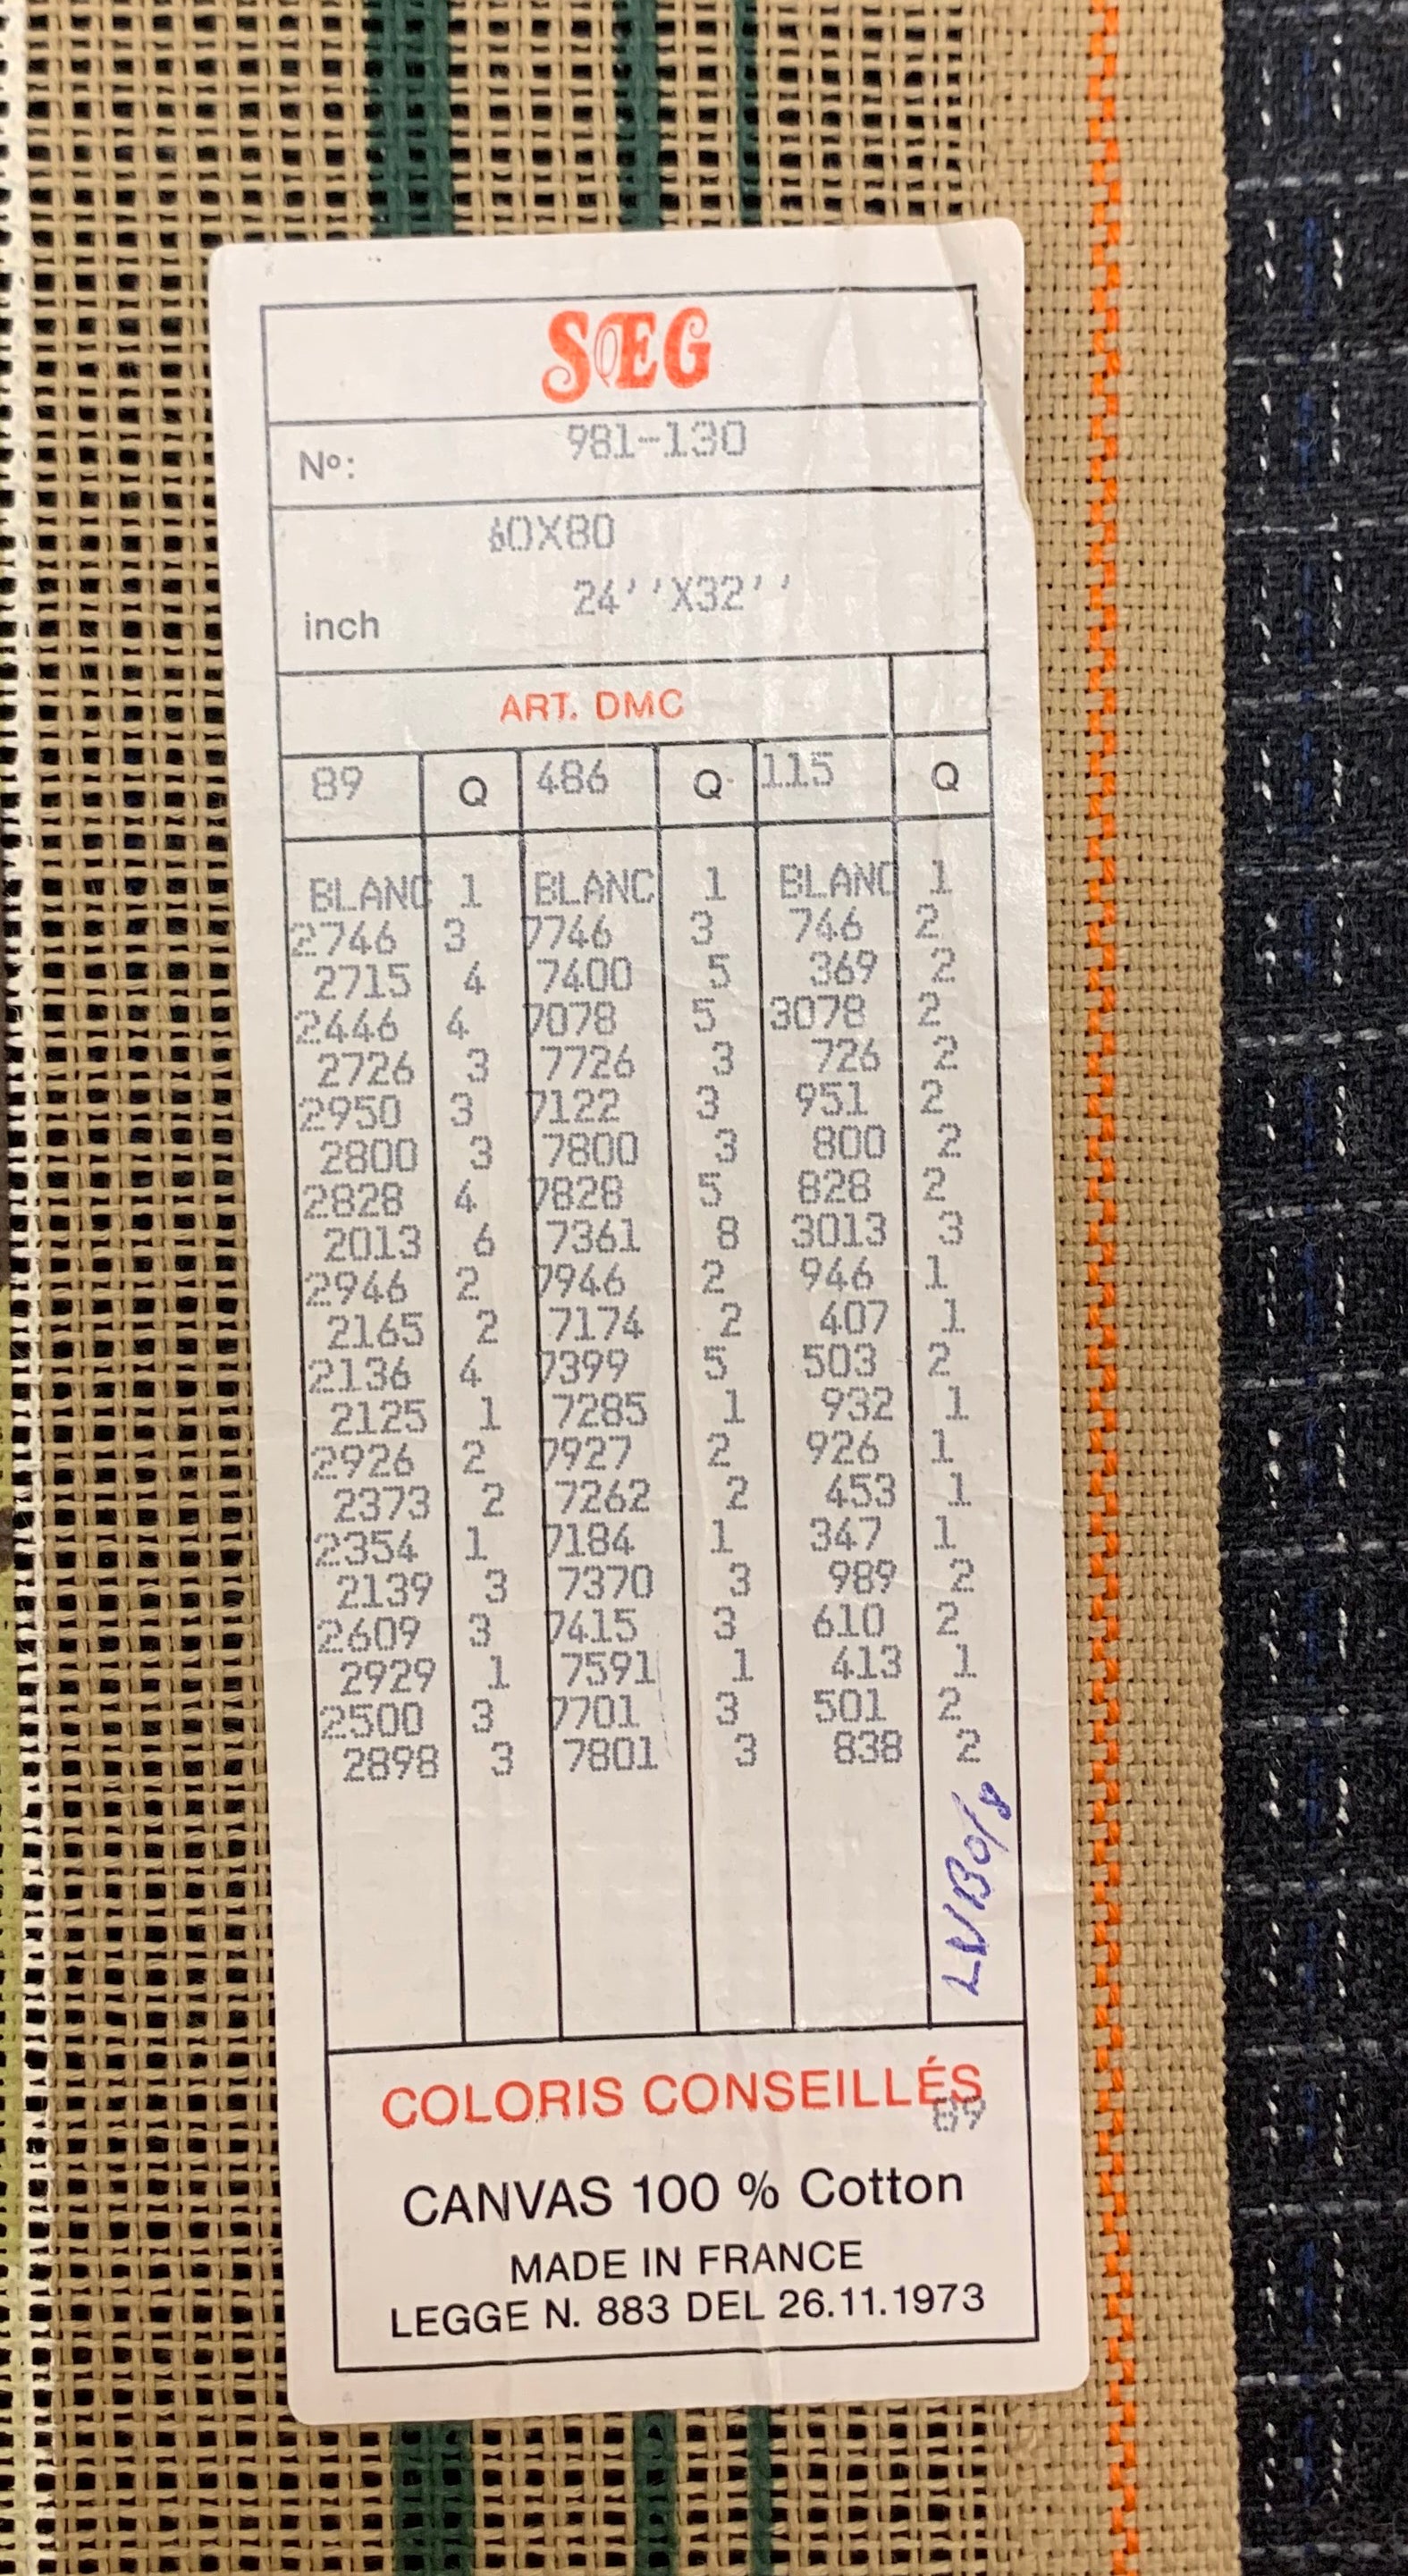 SEG
Nº: 981-130
60X80
inch 24''X32''
ART. DMC
89 Q 486 Q 115 Q
BLANC 1 BLANC 1 BLANC 1
2746 3 7746 3 746 2
2715 4 7400 5 369 2
2446 4 7078 5 3078 2
2726 3 7726 3 726 2
2950 3 7122 3 951 2
2800 3 7800 3 800 2
2828 4 7828 5 828 2
2013 6 7361 8 3013 3
2946 2 7946 2 946 1
2165 2 7174 2 407 1
2136 4 7399 5 503 2
2125 1 7285 1 932 1
2926 2 7927 2 926 1
2373 2 7262 2 453 1
2354 1 7184 1 347 1
2139 3 7370 3 989 2
2609 3 7415 3 610 2
2929 1 7591 1 413 1
2500 3 7701 3 501 2
2898 3 7801 3 838 2
COLORIS CONSEILLÉS
89
CANVAS 100 % Cotton
MADE IN FRANCE
LEGGE N. 883 DEL 26.11.1973